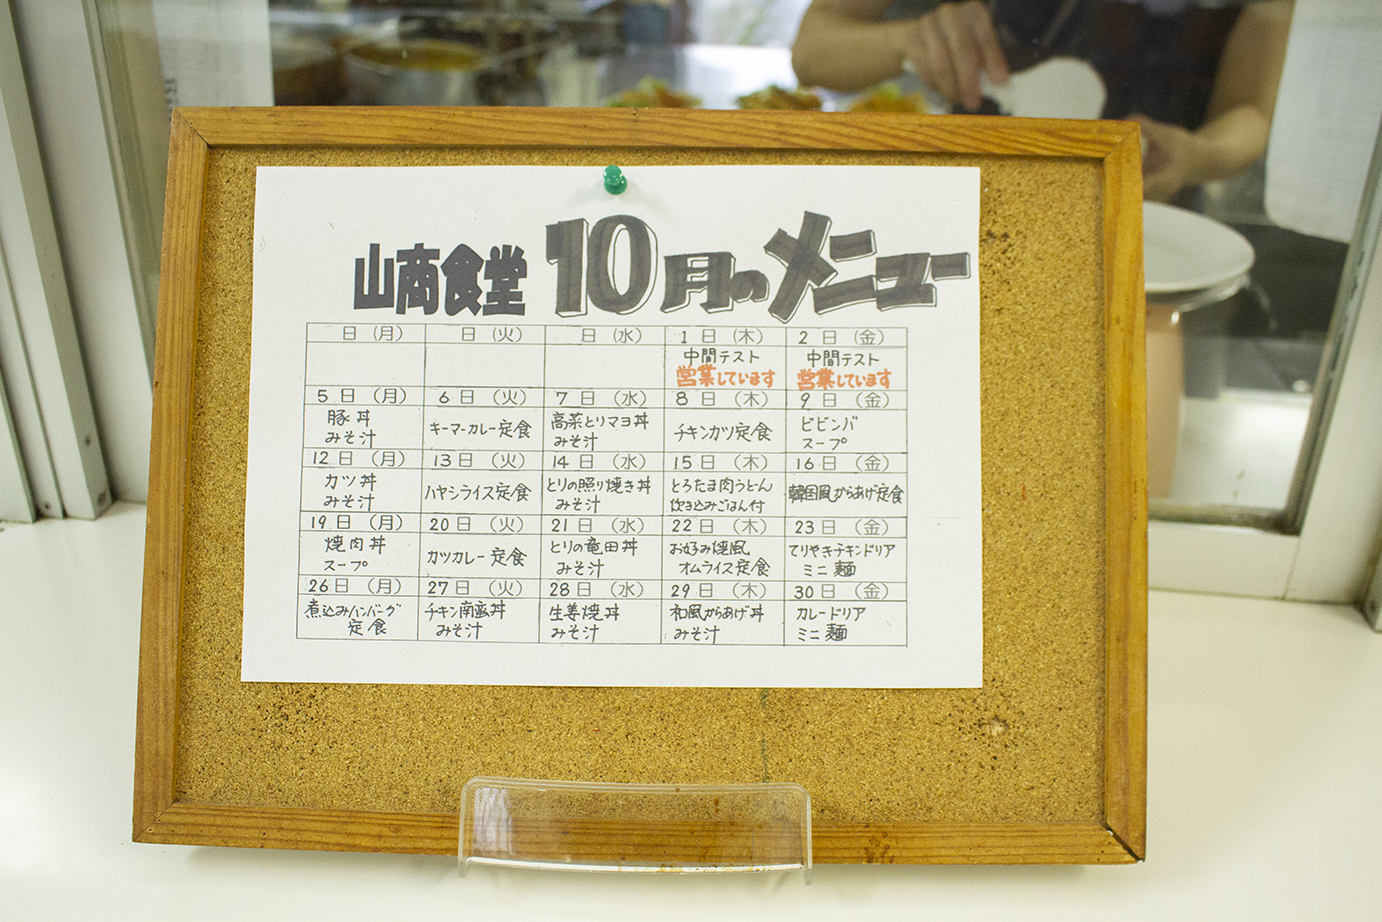 山商食堂 10月のメニュー
日 (月) 日 (火) 日 (水) 1日 (木) 2日 (金)
中間テスト 中間テスト
営業しています 営業しています
5日 (月) 6日 (火) 7日 (水) 8日 (木) 9日 (金)
豚丼 キーマーカレー定食 高菜とりマヨ丼 チキンカツ定食 ビビンバ
みそ汁 みそ汁 スープ
12日 (月) 13日 (火) 14日 (水) 15日 (木) 16日 (金)
カツ丼 ハヤシライス定食 とりの照り焼き丼 とろたま肉うどん 韓国風からあげ定食
みそ汁 みそ汁 炊き込みごはん付
19日 (月) 20日 (火) 21日 (水) 22日 (木) 23日 (金)
焼肉丼 カツカレー定食 とりの竜田丼 お好み焼風 てりやきチキンドリア
スープ みそ汁 オムライス定食 ミニ麺
26日 (月) 27日 (火) 28日 (水) 29日 (木) 30日 (金)
煮込みハンバーグ チキン南蛮丼 生姜焼丼 和風からあげ丼 カレードリア
定食 みそ汁 みそ汁 みそ汁 ミニ麺